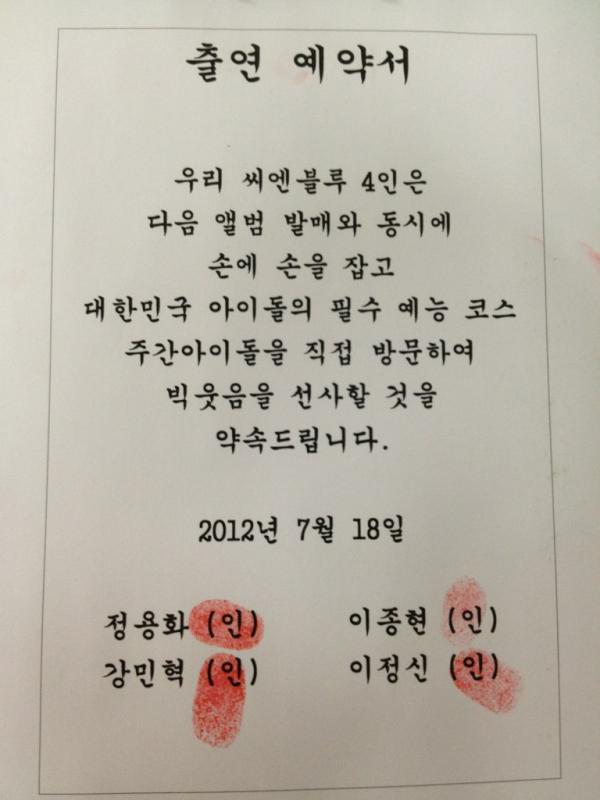 출연 예약서
우리 씨엔블루 4인은
다음 앨범 발매와 동시에
손에 손을 잡고
대한민국 아이돌의 필수 예능 코스
주간아이돌을 직접 방문하여
빅웃음을 선사할 것을
약속드립니다.
2012년 7월 18일
정용화 (인) 이종현 (인)
강민혁 (인) 이정신 (인)